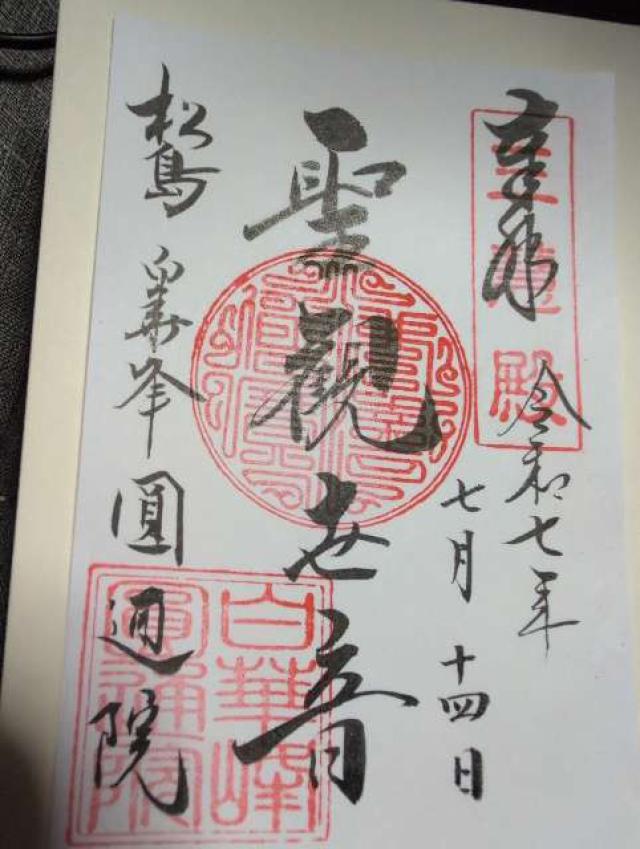 奉拝
令和七年
七月十四日
聖觀世音
松島 白華峰 圓通院
三慧殿
白華峰
圓通院